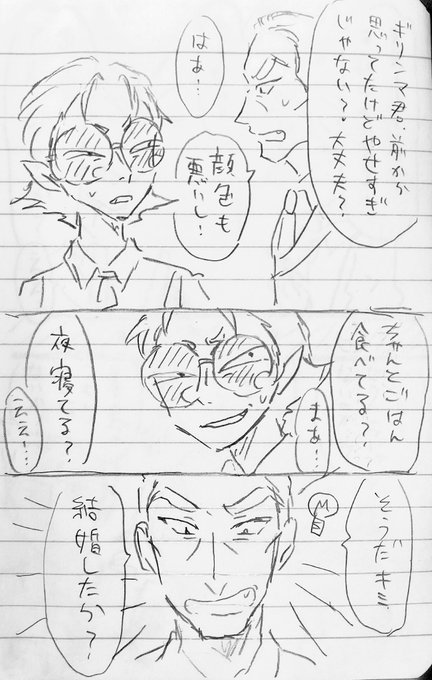 ギリンマ君、前から
思ってたけどやせすぎ
じゃない?大丈夫?
はあ…
顔色も
悪いし!
ちゃんとごはん
食べてる?
まあ…
夜寝てる?
ええ…
そうだキミ
M目
結婚したか?